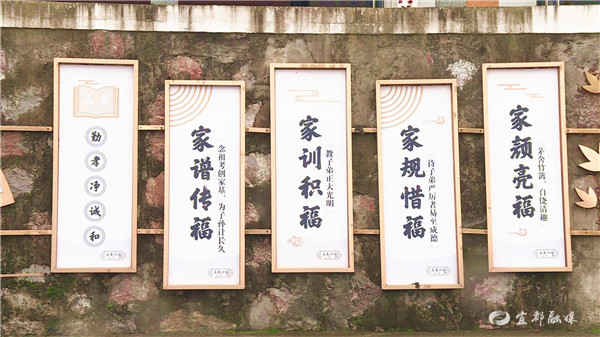 勤
孝
净
诚
和
家谱传福
念祖考创家基，为子孙计长久
家训积福
教子弟正大光明
家规惜福
待子弟严厉者易至成德
家颜亮福
茅舍竹篱，自饶清趣
宜都融媒